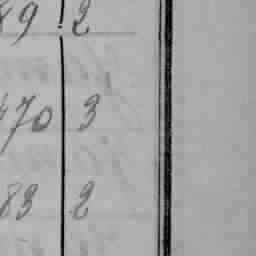 89 2
470 3
83 2